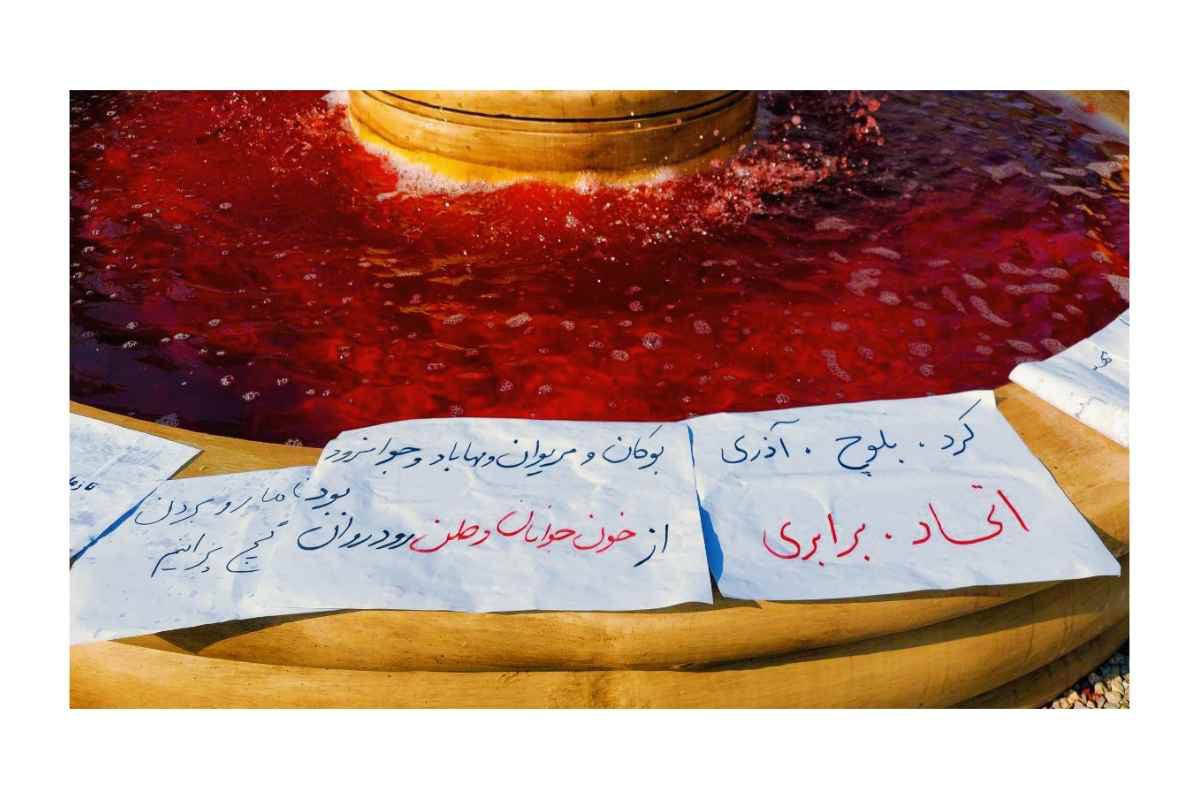 کرد . بلوچ . آذری
اتحاد . برابری
بوکان و مریوان و مهاباد و جوانرود
از خون جوانان وطن رود روان
بود ما رو بردن